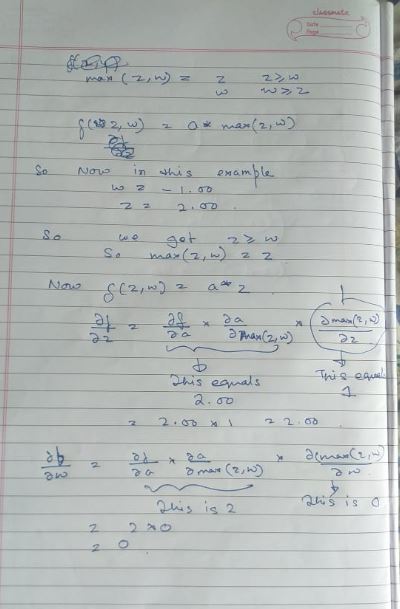 classmate
Date
Page
max(z,w) = z z≥w
w w≥z
f(z,w) = a* max(z,w)
So Now in this example
w = -1.00
z = 2.00.
So we get z≥w
So max(z,w) = z
Now f(z,w) = a*z
∂f/∂z = ∂f/∂a * ∂a/∂max(z,w) * ∂max(z,w)/∂z
This equals 2.00
This equals 1
= 2.00 * 1 = 2.00.
∂f/∂w = ∂f/∂a * ∂a/∂max(z,w) * ∂(max(z,w)/∂w
This is 2
This is 0
= 2*0
= 0